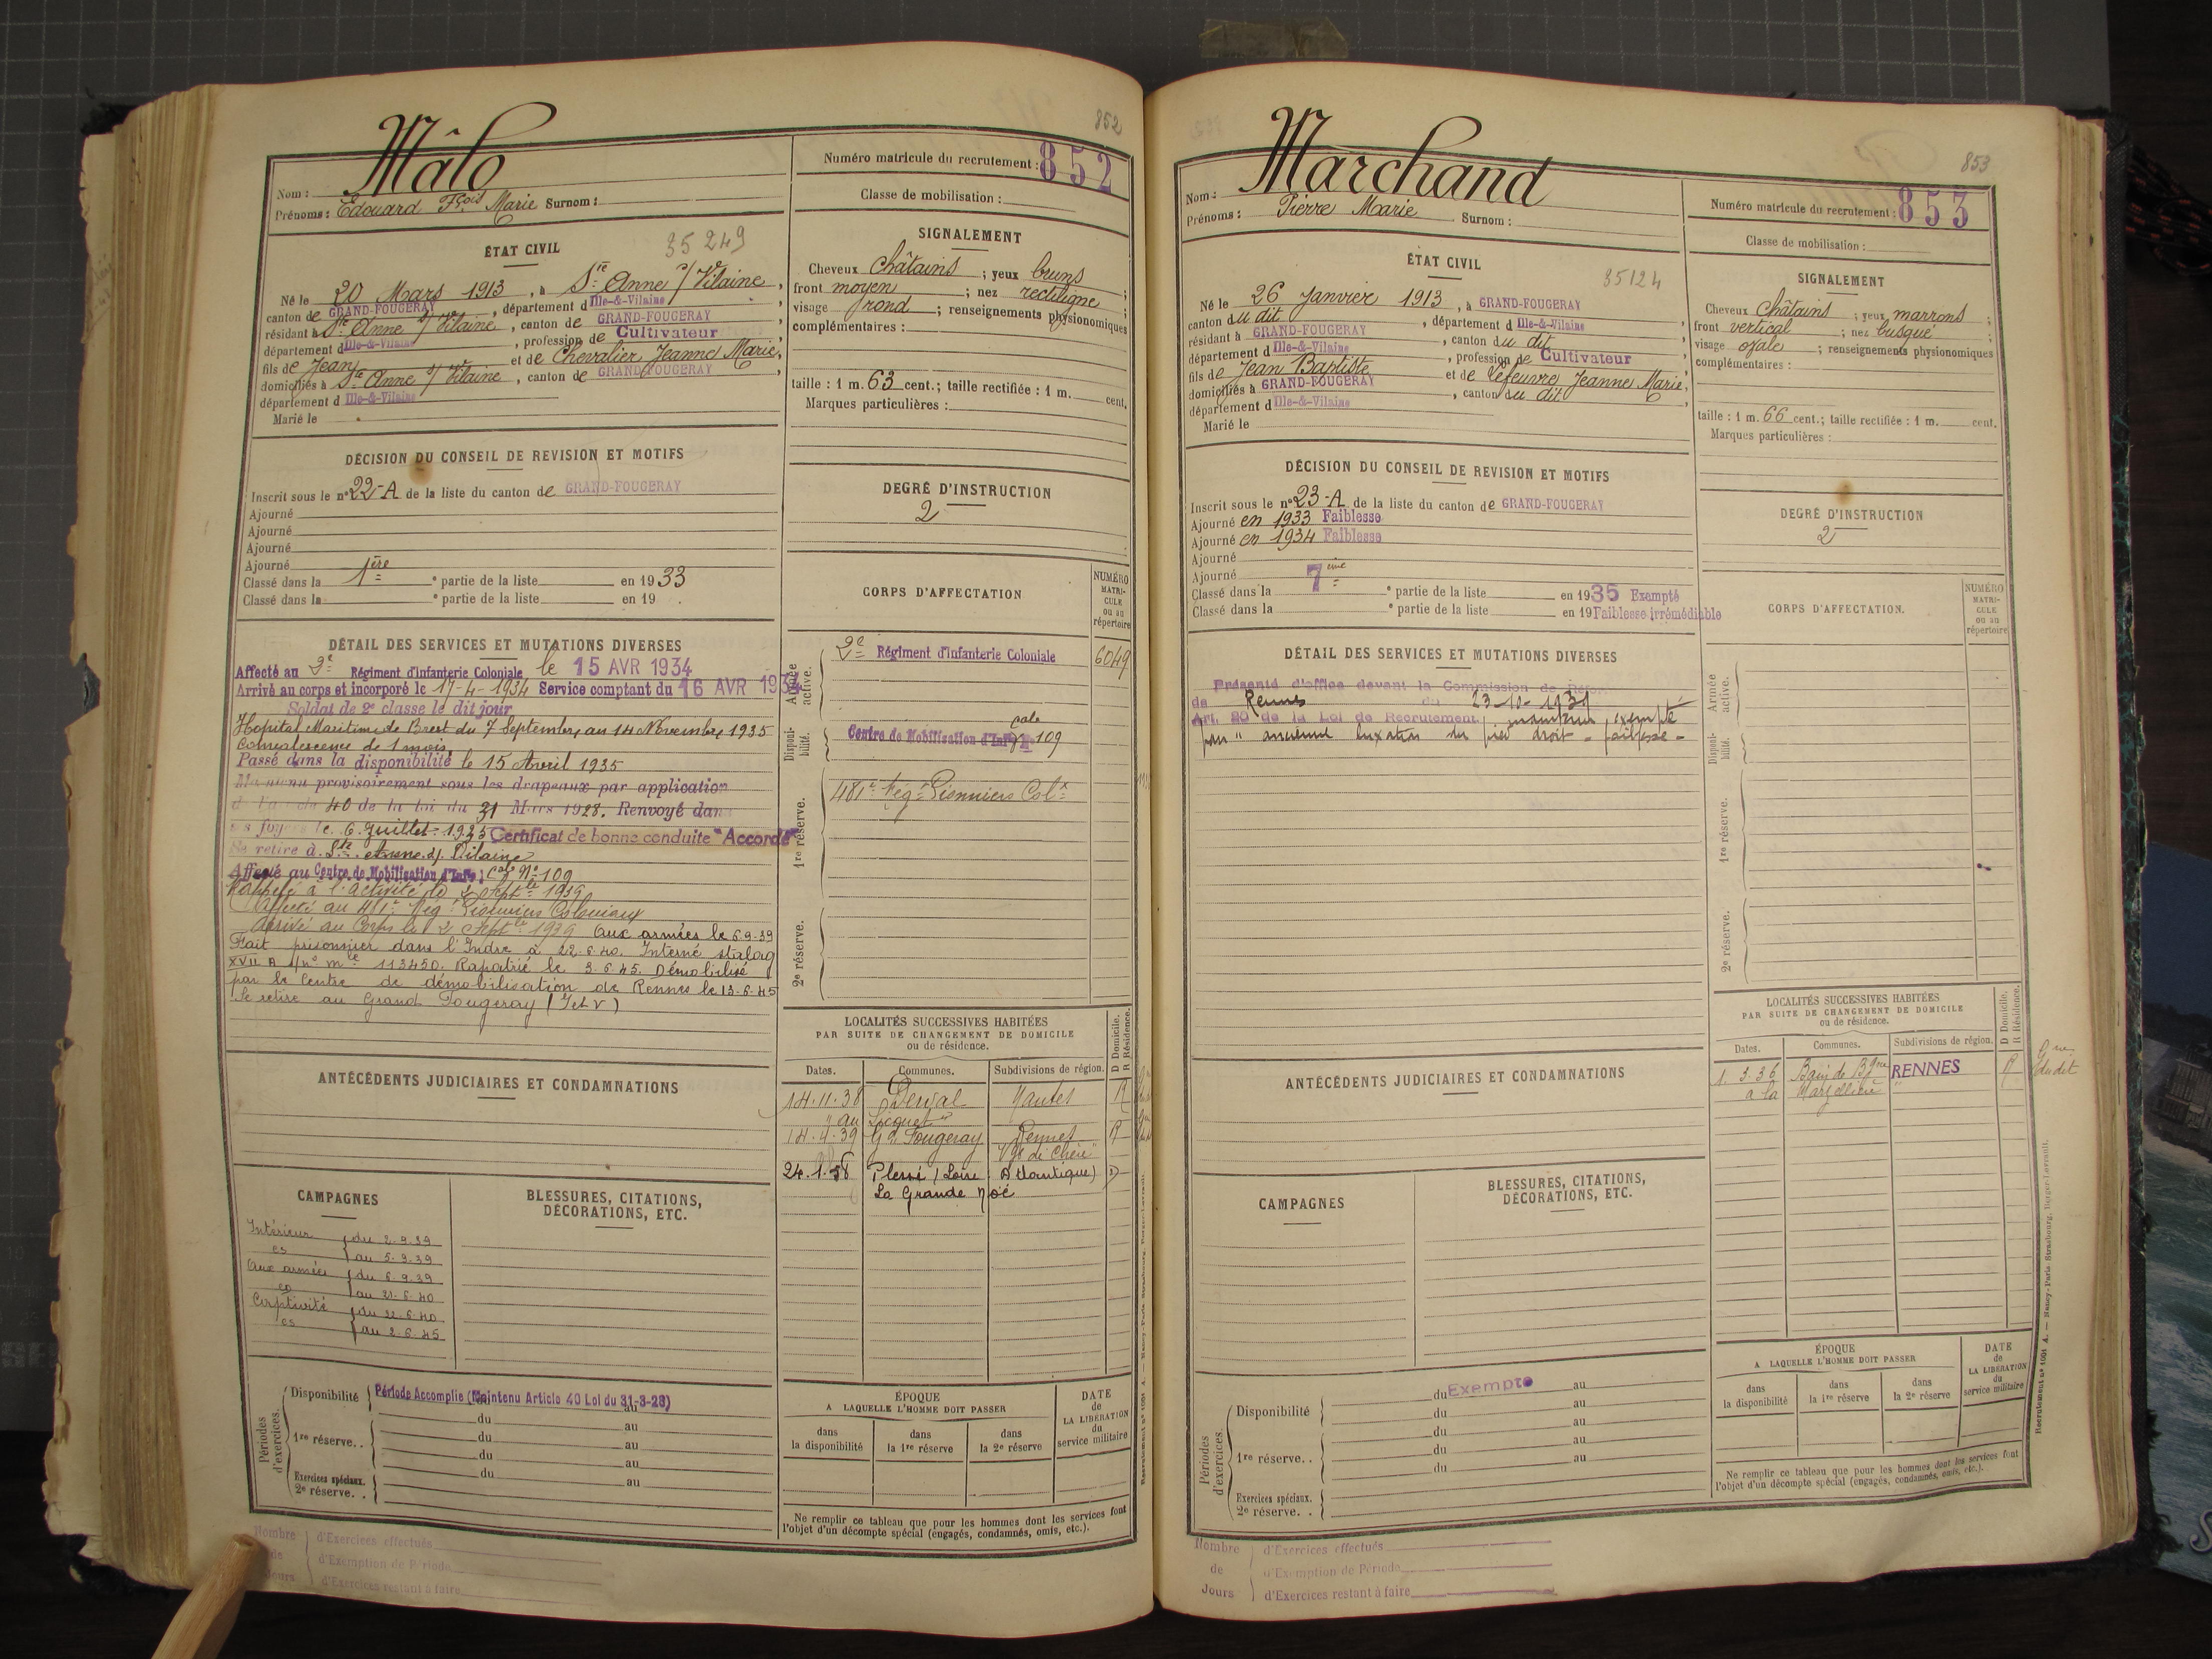 852
Mâlo
Nom :
Prénoms : Edouard Fçois Marie Surnom :
Numéro matricule du recrutement : 852
Classe de mobilisation :
ÉTAT CIVIL
35249
Né le 20 Mars 1913, à Ste Anne s/ Vilaine,
canton de GRAND-FOUGERAY, département d Ille-&-Vilaine,
résidant à Ste Anne s/ Vilaine, canton de GRAND-FOUGERAY,
département d Ille-&-Vilaine, profession de Cultivateur,
fils de Jean et de Chevalier Jeanne Marie,
domiciliés à Ste Anne s/ Vilaine, canton de GRAND-FOUGERAY,
département d Ille-&-Vilaine
Marié le
SIGNALEMENT
Cheveux châtains ; yeux bruns ;
front moyen ; nez rectiligne ;
visage rond ; renseignements physionomiques
complémentaires :
taille : 1 m. 63 cent.; taille rectifiée : 1 m. cent.
Marques particulières :
DÉCISION DU CONSEIL DE REVISION ET MOTIFS
Inscrit sous le n° 22-A de la liste du canton de GRAND-FOUGERAY
Ajourné
Ajourné
Ajourné
Ajourné
Classé dans la 1ère e partie de la liste en 1933
Classé dans la e partie de la liste en 19
DEGRÉ D'INSTRUCTION
2
DÉTAIL DES SERVICES ET MUTATIONS DIVERSES
Affecté au 2e Régiment d'Infanterie Coloniale le 15 AVR 1934
Arrivé au corps et incorporé le 17-4-1934 Service comptant du 16 AVR 1934
Soldat de 2e classe le dit jour
Hopital Maritime de Brest du 7 Septembre au 14 Novembre 1935
Convalescence de 1 mois
Passé dans la disponibilité le 15 Avril 1935
Maintenu provisoirement sous les drapeaux par application
40 de la loi du 31 Mars 1928. Renvoyé dans
ses foyers le 6 Juillet 1935 Certificat de bonne conduite "Accordé"
Se retire à Ste Anne s/ Vilaine
Affecté au Centre de Mobilisation d'Infie cale N° 109
Rappelé à l'activité le 2 Septbre 1939
Affecté au 481e Régt Pionniers Coloniaux
Arrivé au Corps le 2 Septbre 1939 Aux armées le 6.9.39
Fait prisonnier dans l'Indre à 22.6.40. Interné stalag
XVII A n° mle 113450. Rapatrié le 3.6.45. Démobilisé
par le Centre de démobilisation de Rennes le 13-6-45
Se retire au Grand Fougeray (I et V)
CORPS D'AFFECTATION
NUMÉRO MATRICULE ou au répertoire
Armée active.
2e Régiment d'Infanterie Coloniale 6049
Disponibilité.
Centre de Mobilisation d'Infie cale N° 109
1re réserve.
481e Régt Pionniers Colx
2e réserve.
ANTÉCÉDENTS JUDICIAIRES ET CONDAMNATIONS
LOCALITÉS SUCCESSIVES HABITÉES
PAR SUITE DE CHANGEMENT DE DOMICILE
ou de résidence.
D Domicile. R Résidence.
Dates. Communes. Subdivisions de région.
14.11.38 Derval Nantes R
14.4.39 Gd Fougeray Rennes R
24.1.58 Plessé (Loire Atlantique) D
La Grande Noé
CAMPAGNES
Intérieur du 2.9.39
au 5.9.39
Aux armées du 6.9.39
au 21.6.40
Captivité du 22.6.40
au 2.6.45
BLESSURES, CITATIONS,
DÉCORATIONS, ETC.
Périodes d'exercices.
Disponibilité Période Accomplie (Maintenu Article 40 Loi du 31-3-28)
au
du au
1re réserve. . du au
du au
Exercices spéciaux. du au
2e réserve. .
ÉPOQUE
A LAQUELLE L'HOMME DOIT PASSER
dans la disponibilité
dans la 1re réserve
dans la 2e réserve
DATE de LA LIBÉRATION du service militaire
Ne remplir ce tableau que pour les hommes dont les services font
l'objet d'un décompte spécial (engagés, condamnés, omis, etc.).
Nombre de Jours
d'Exercices effectués
d'Exemption de Période
d'Exercices restant à faire
853
Marchand
Nom :
Prénoms : Pierre Marie Surnom :
Numéro matricule du recrutement : 853
Classe de mobilisation :
ÉTAT CIVIL
35124
Né le 26 Janvier 1913, à GRAND-FOUGERAY
canton du dit, département d Ille-&-Vilaine,
résidant à GRAND-FOUGERAY, canton du dit,
département d Ille-&-Vilaine, profession de Cultivateur,
fils de Jean Baptiste et de Lefeuvre Jeanne Marie,
domiciliés à GRAND-FOUGERAY, canton du dit,
département d Ille-&-Vilaine
Marié le
SIGNALEMENT
Cheveux châtains ; yeux marrons ;
front vertical ; nez busqué ;
visage ovale ; renseignements physionomiques
complémentaires :
taille : 1 m. 66 cent.; taille rectifiée : 1 m. cent.
Marques particulières :
DÉCISION DU CONSEIL DE REVISION ET MOTIFS
Inscrit sous le n° 23-A de la liste du canton de GRAND-FOUGERAY
Ajourné en 1933 Faiblesse
Ajourné en 1934 Faiblesse
Ajourné
Ajourné
Classé dans la 7ème e partie de la liste en 1935 Exempté
Classé dans la e partie de la liste en 19 Faiblesse irrémédiable
DEGRÉ D'INSTRUCTION
2
DÉTAIL DES SERVICES ET MUTATIONS DIVERSES
Présenté d'office devant la Commission de Réforme
de Rennes du 23-10-1939
Art. 20 de la Loi de Recrutement. exempté
pour " ancienne luxation du pied droit - faiblesse -
CORPS D'AFFECTATION.
NUMÉRO MATRICULE ou au répertoire
Armée active.
Disponibilité.
1re réserve.
2e réserve.
ANTÉCÉDENTS JUDICIAIRES ET CONDAMNATIONS
LOCALITÉS SUCCESSIVES HABITÉES
PAR SUITE DE CHANGEMENT DE DOMICILE
ou de résidence.
D Domicile. R Résidence.
Dates. Communes. Subdivisions de région.
1.3.36 Bain de Bgne RENNES R
CAMPAGNES
BLESSURES, CITATIONS,
DÉCORATIONS, ETC.
Périodes d'exercices.
du Exempté au
Disponibilité du au
du au
1re réserve. . du au
du au
Exercices spéciaux.
2e réserve. .
ÉPOQUE
A LAQUELLE L'HOMME DOIT PASSER
dans la disponibilité
dans la 1re réserve
dans la 2e réserve
DATE de LA LIBÉRATION du service militaire
Ne remplir ce tableau que pour les hommes dont les services font
l'objet d'un décompte spécial (engagés, condamnés, omis, etc.).
Recrutement n° 1001 A. — Nancy-Paris-Strasbourg, Berger-Levrault.
Nombre de Jours
d'Exercices effectués
d'Exemption de Période
d'Exercices restant à faire